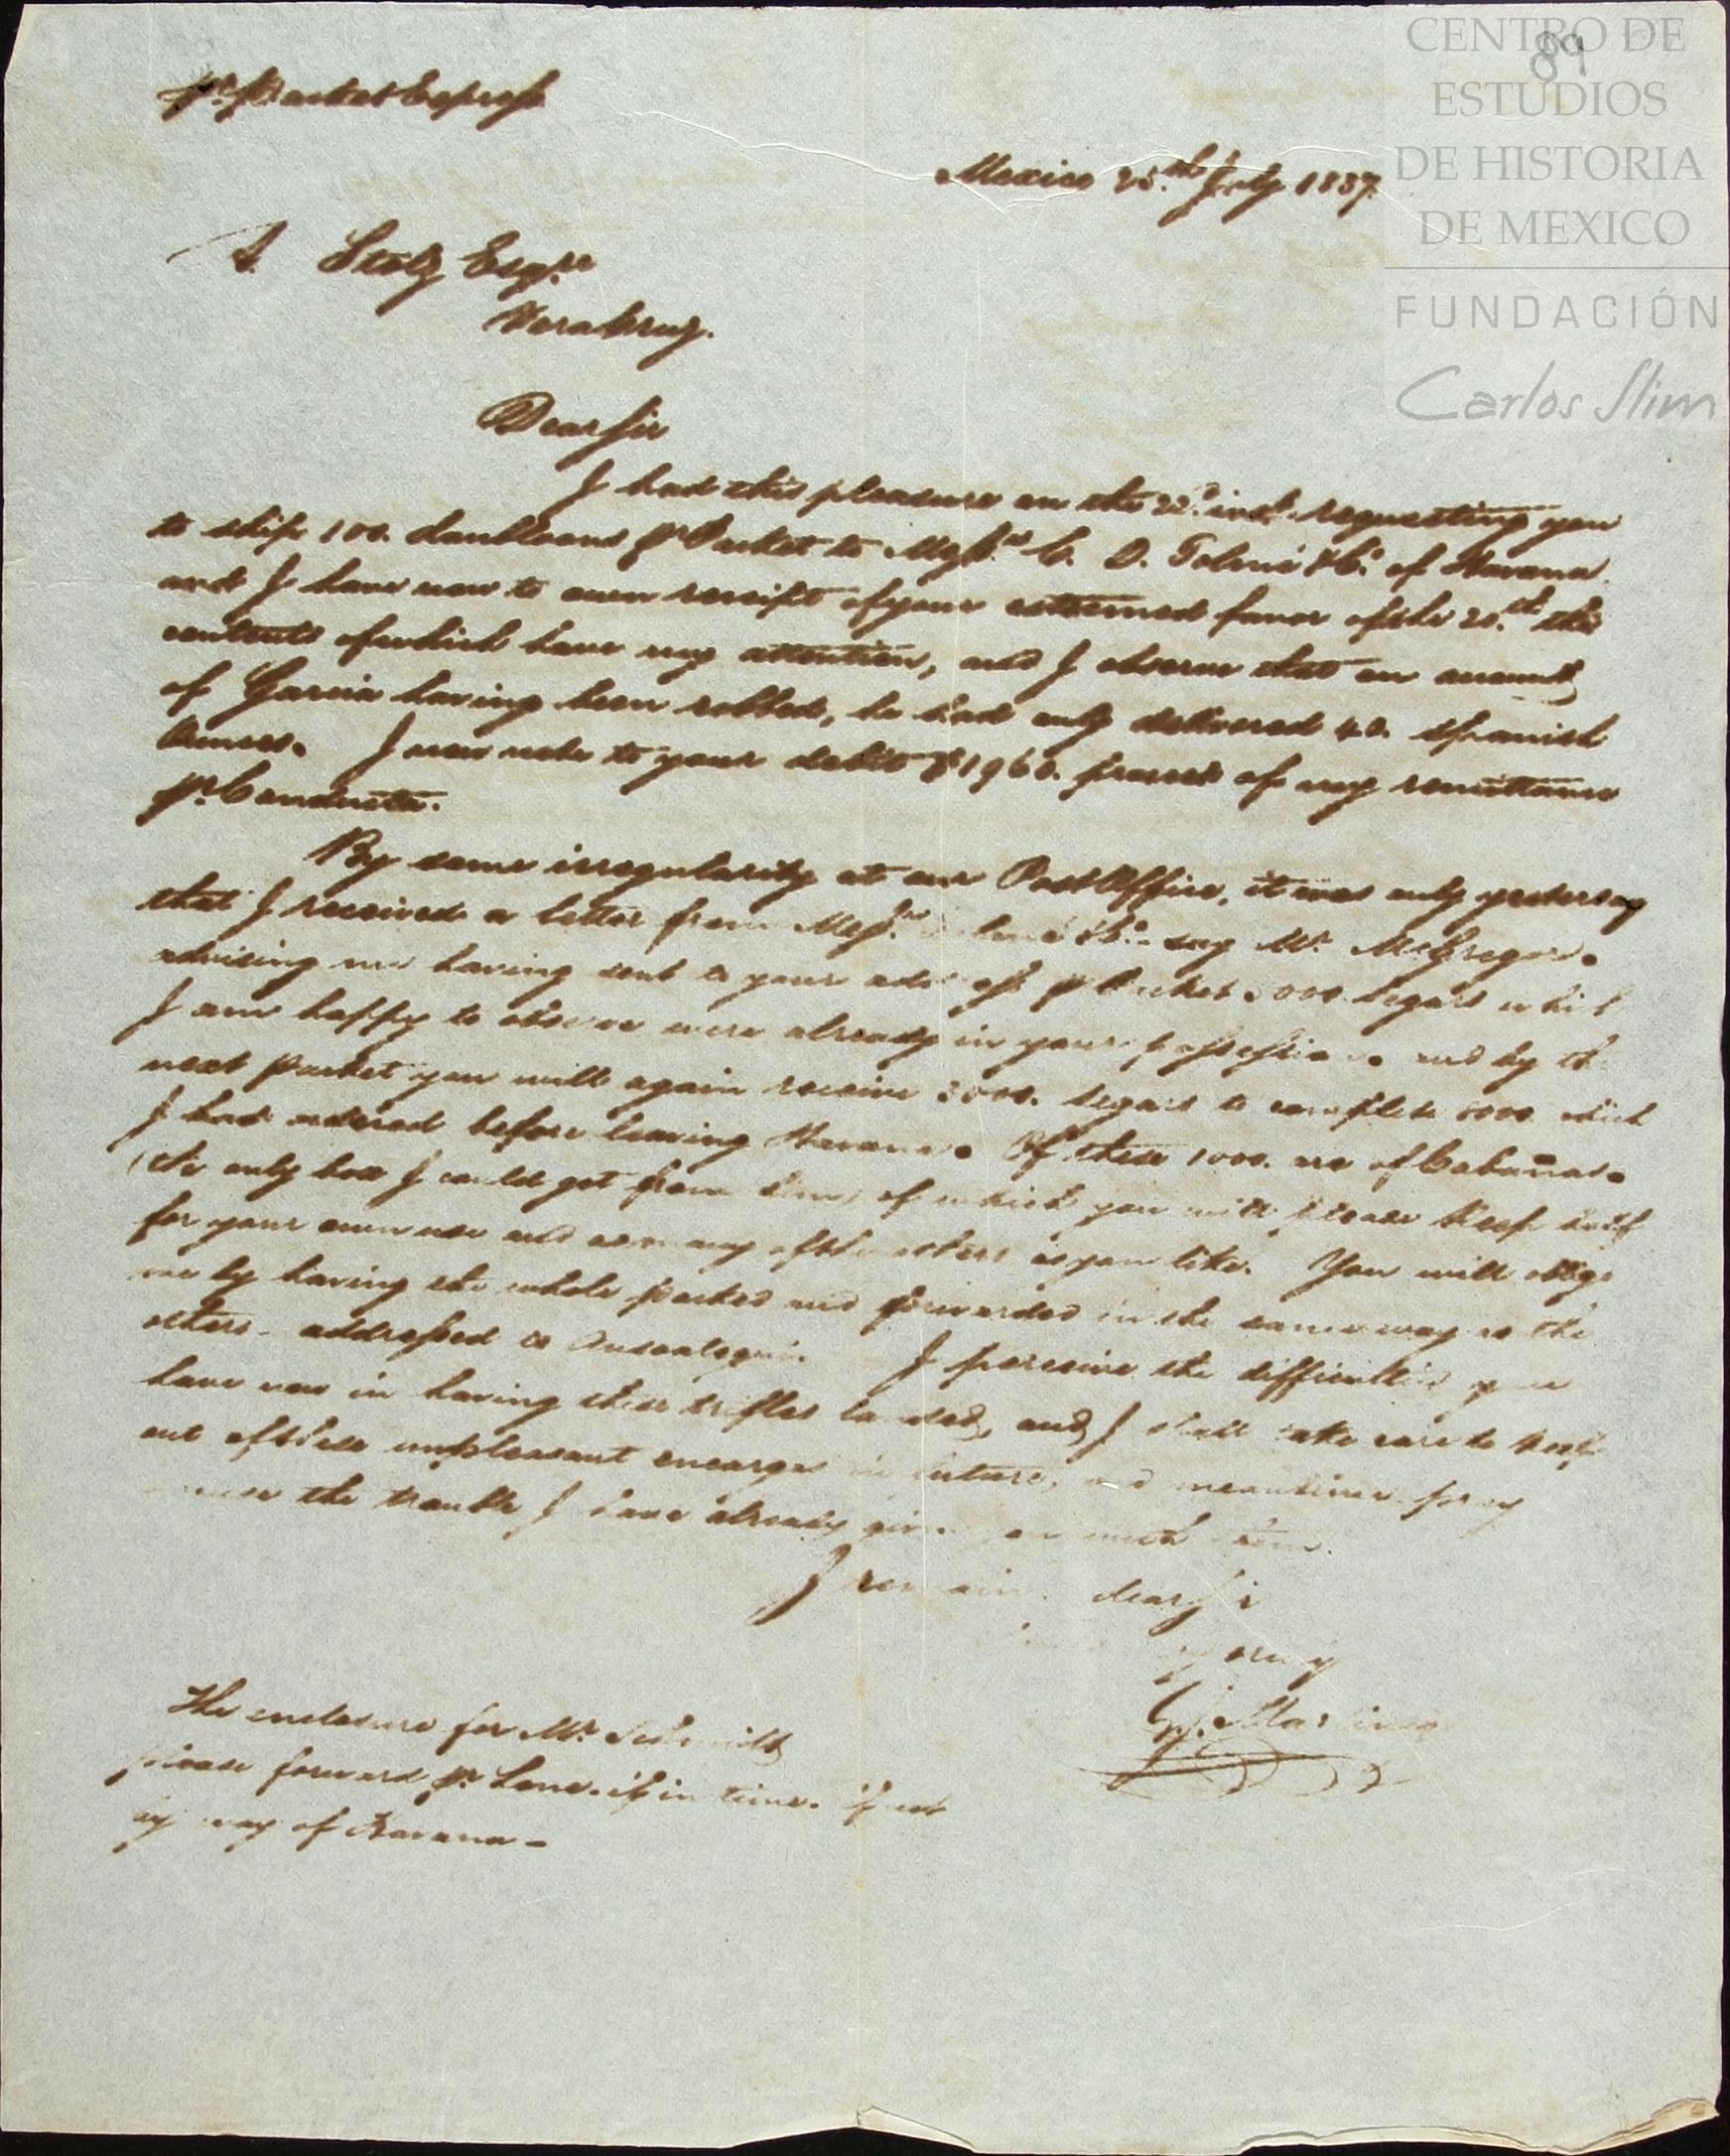 CENTRO DE
89
ESTUDIOS
DE HISTORIA
DE MEXICO
FUNDACIÓN
Carlos Slim
pr. Packet Express
Mexico 25.th July 1837.
A. Stolz Esqre
Vera Cruz.
Dear Sir
I had this pleasure on the 22d. inst. requesting you
to ship 100. doubloons pr Packet to Messrs. C. D. Tolmé & Co. of Havana.
and I have now to own receipt of your esteemed favor of the 20.th the
contents of which have my attention, and I observe that on account
of Garcia having been robbed, he had only delivered 40. Spanish
Ounces. I now note to your debit $1960. proceeds of my remittance
pr. Conducta.
By some irregularity at our Post Office, it was only yesterday
that I received a letter from Messrs. Tolmé & Co. say Mr. McGregor.
advising me having sent to your address pr Packet 000. Segars which
I am happy to observe were already in your possession. and by the
next packet you will again receive 3000. Segars to complete 6000. which
I had ordered before leaving Havana. Of these 1000. are of Cabañas.
(the only box I could get from him) of which you will please keep half
for your own use and as many of the others as you like. You will oblige
me by having the whole packed and forwarded in the same way as the
others. addressed to I perceive the difficulties you
have now in having these trifles landed, and I shall take care to keep
out of these unpleasant encargos in future, and meantime pray
excuse the trouble I have already given you with them.
I remain, dear Sir
Yours truly
G. Martinez
The enclosure for Mr. Schmidt
please forward pr. if in time. if not
by way of Havana -